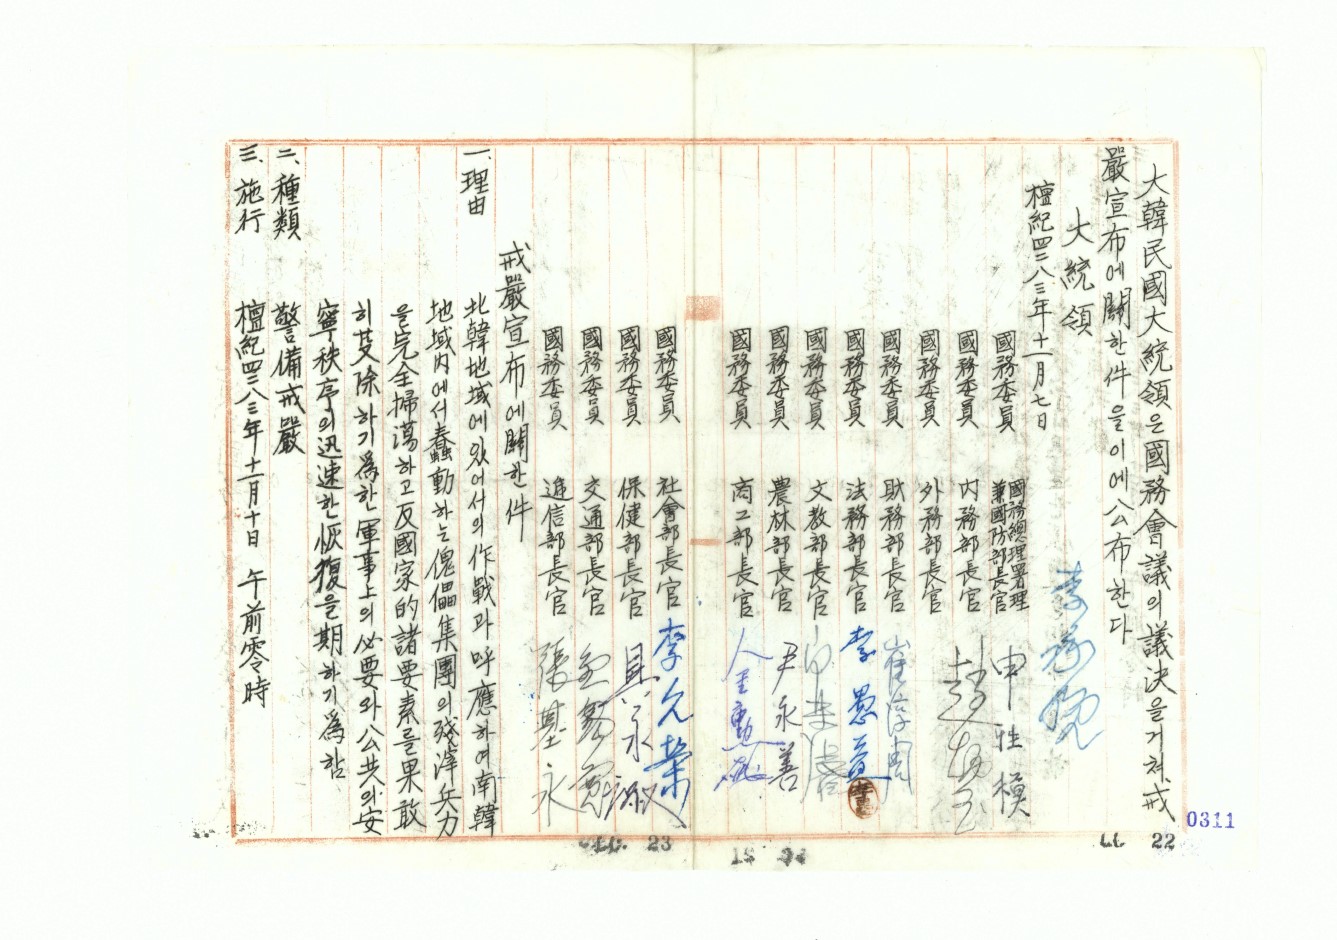 大韓民國大統領은國務會議의議決을거쳐戒
嚴宣布에關한件을이에公布한다
大統領 李承晩
檀紀四二八三年十一月七日
國務委員 國務總理署理
兼國防部長官 申性模
國務委員 內務部長官 趙炳玉
國務委員 外務部長官
國務委員 財務部長官 崔淳周
國務委員 法務部長官 李愚益
國務委員 文教部長官
國務委員 農林部長官 尹永善
國務委員 商工部長官 金勳
國務委員 社會部長官 李允榮
國務委員 保健部長官 具永淑
國務委員 交通部長官 金錫寬
國務委員 遞信部長官 張基永
戒嚴宣布에關한件
一、理由 北韓地域에있어서의作戰과呼應하여南韓
地域內에서蠢動하는傀儡集團의殘滓兵力
을完全掃蕩하고反國家的諸要素를果敢
히芟除하기爲한軍事上의必要와公共의安
寧秩序의迅速한恢復을期하기爲함
二、種類 警備戒嚴
三、施行 檀紀四二八三年十一月十日 午前零時
0311
22
23